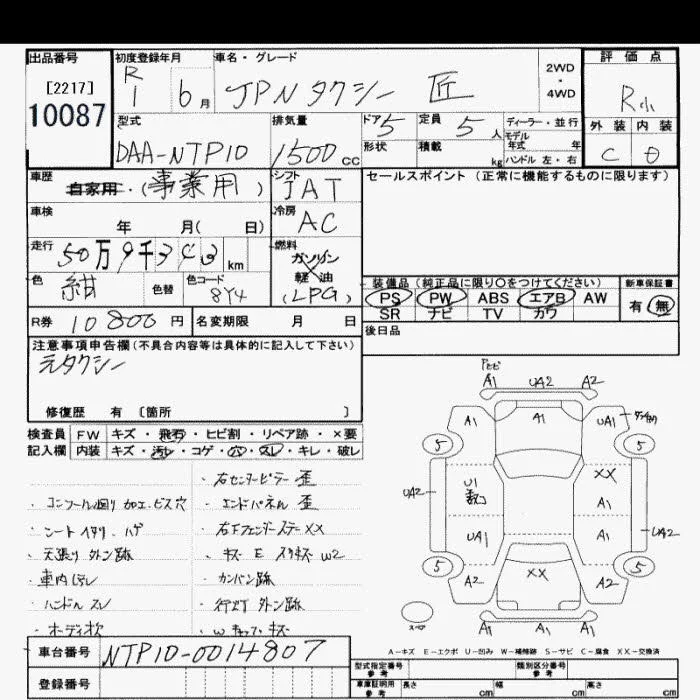 出品番号
[2217]
10087
初度登録年月
R1 6月
車名・グレード
JPNタクシー 匠
2WD
・
4WD
評価点
R小
外装 内装
C D
型式
DAA-NTP10
排気量
1500cc
ドア 5
形状
定員 5人
積載 kg
ディーラー・並行
モデル年式 年
ハンドル 左・右
車歴
自家用・(事業用)
シフト
IAT
車検
年 月( 日)
冷房
AC
走行
50万9千 km
燃料
ガソリン
軽油
(LPG)
色
紺
色替
色コード
8Y4
R券 10800円
名変期限 月 日
セールスポイント(正常に機能するものに限ります)
装備品(純正品に限り〇をつけてください)
PS PW ABS エアB AW
SR ナビ TV カワ
新車保証書
有・無
後日品
注意事項申告欄(不具合内容等は具体的に記入して下さい)
元タクシー
修復歴 有 〔箇所 〕
検査員記入欄
FW キズ・飛石・ヒビ割・リペア跡・×要
内装 キズ・汚レ・コゲ・穴・スレ・キレ・破レ
・右センターピラー 歪
・コンソール廻り 加工、ビス穴
・エンドパネル 歪
・シートヘタリ、ハゲ
・右Fフェンダーステー XX
・天張り 外シ跡
・キズ E スリキズ W2
・車内汚レ
・カンバン跡
・ハンドル スレ
・行灯 外シ跡
・ボディ
・W キズ
A1 UA2 A2
A1 A1 UA1
5 5
U1
数コ
XX
UA2
A1
UA1 A1
UA2
5 5
A2 XX A2
スペア
A1 A1 A1
A-キズ E-エクボ U-凹み W-補修跡 S-サビ C-腐食 XX-交換済
車台番号 NTP10-0014807
登録番号
型式指定番号
参考
類別区分番号
参考
車庫証明用
参考
長さ cm 幅 cm 高さ cm